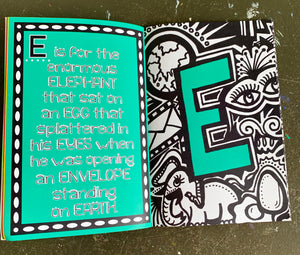 E
is for the
enormous
ELEPHANT
that sat on
an EGG that
splattered in
his EYES when
he was opening
an ENVELOPE
standing
on EARTH.
E